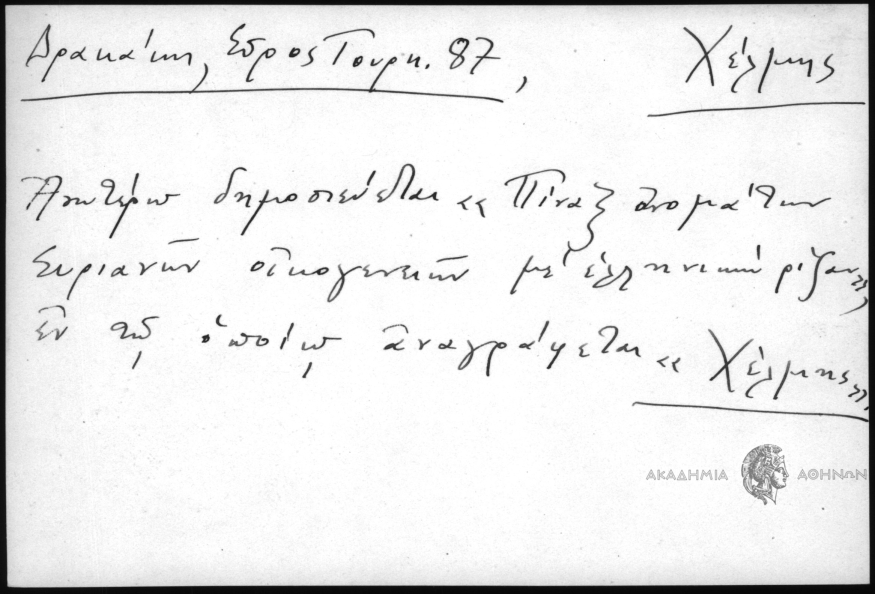 Δρακάκη, Σῦρος Τουρκ. 87, Χέλμης
Ἀνωτέρω δημοσιεύεται «Πίναξ ὀνομάτων
Συριανῶν οἰκογενειῶν μὲ ἑλληνικὴν ρίζαν»,
ἐν τῷ ὁποίῳ ἀναγράφεται «Χέλμης»
ΑΚΑΔΗΜΙΑ ΑΘΗΝΩΝ